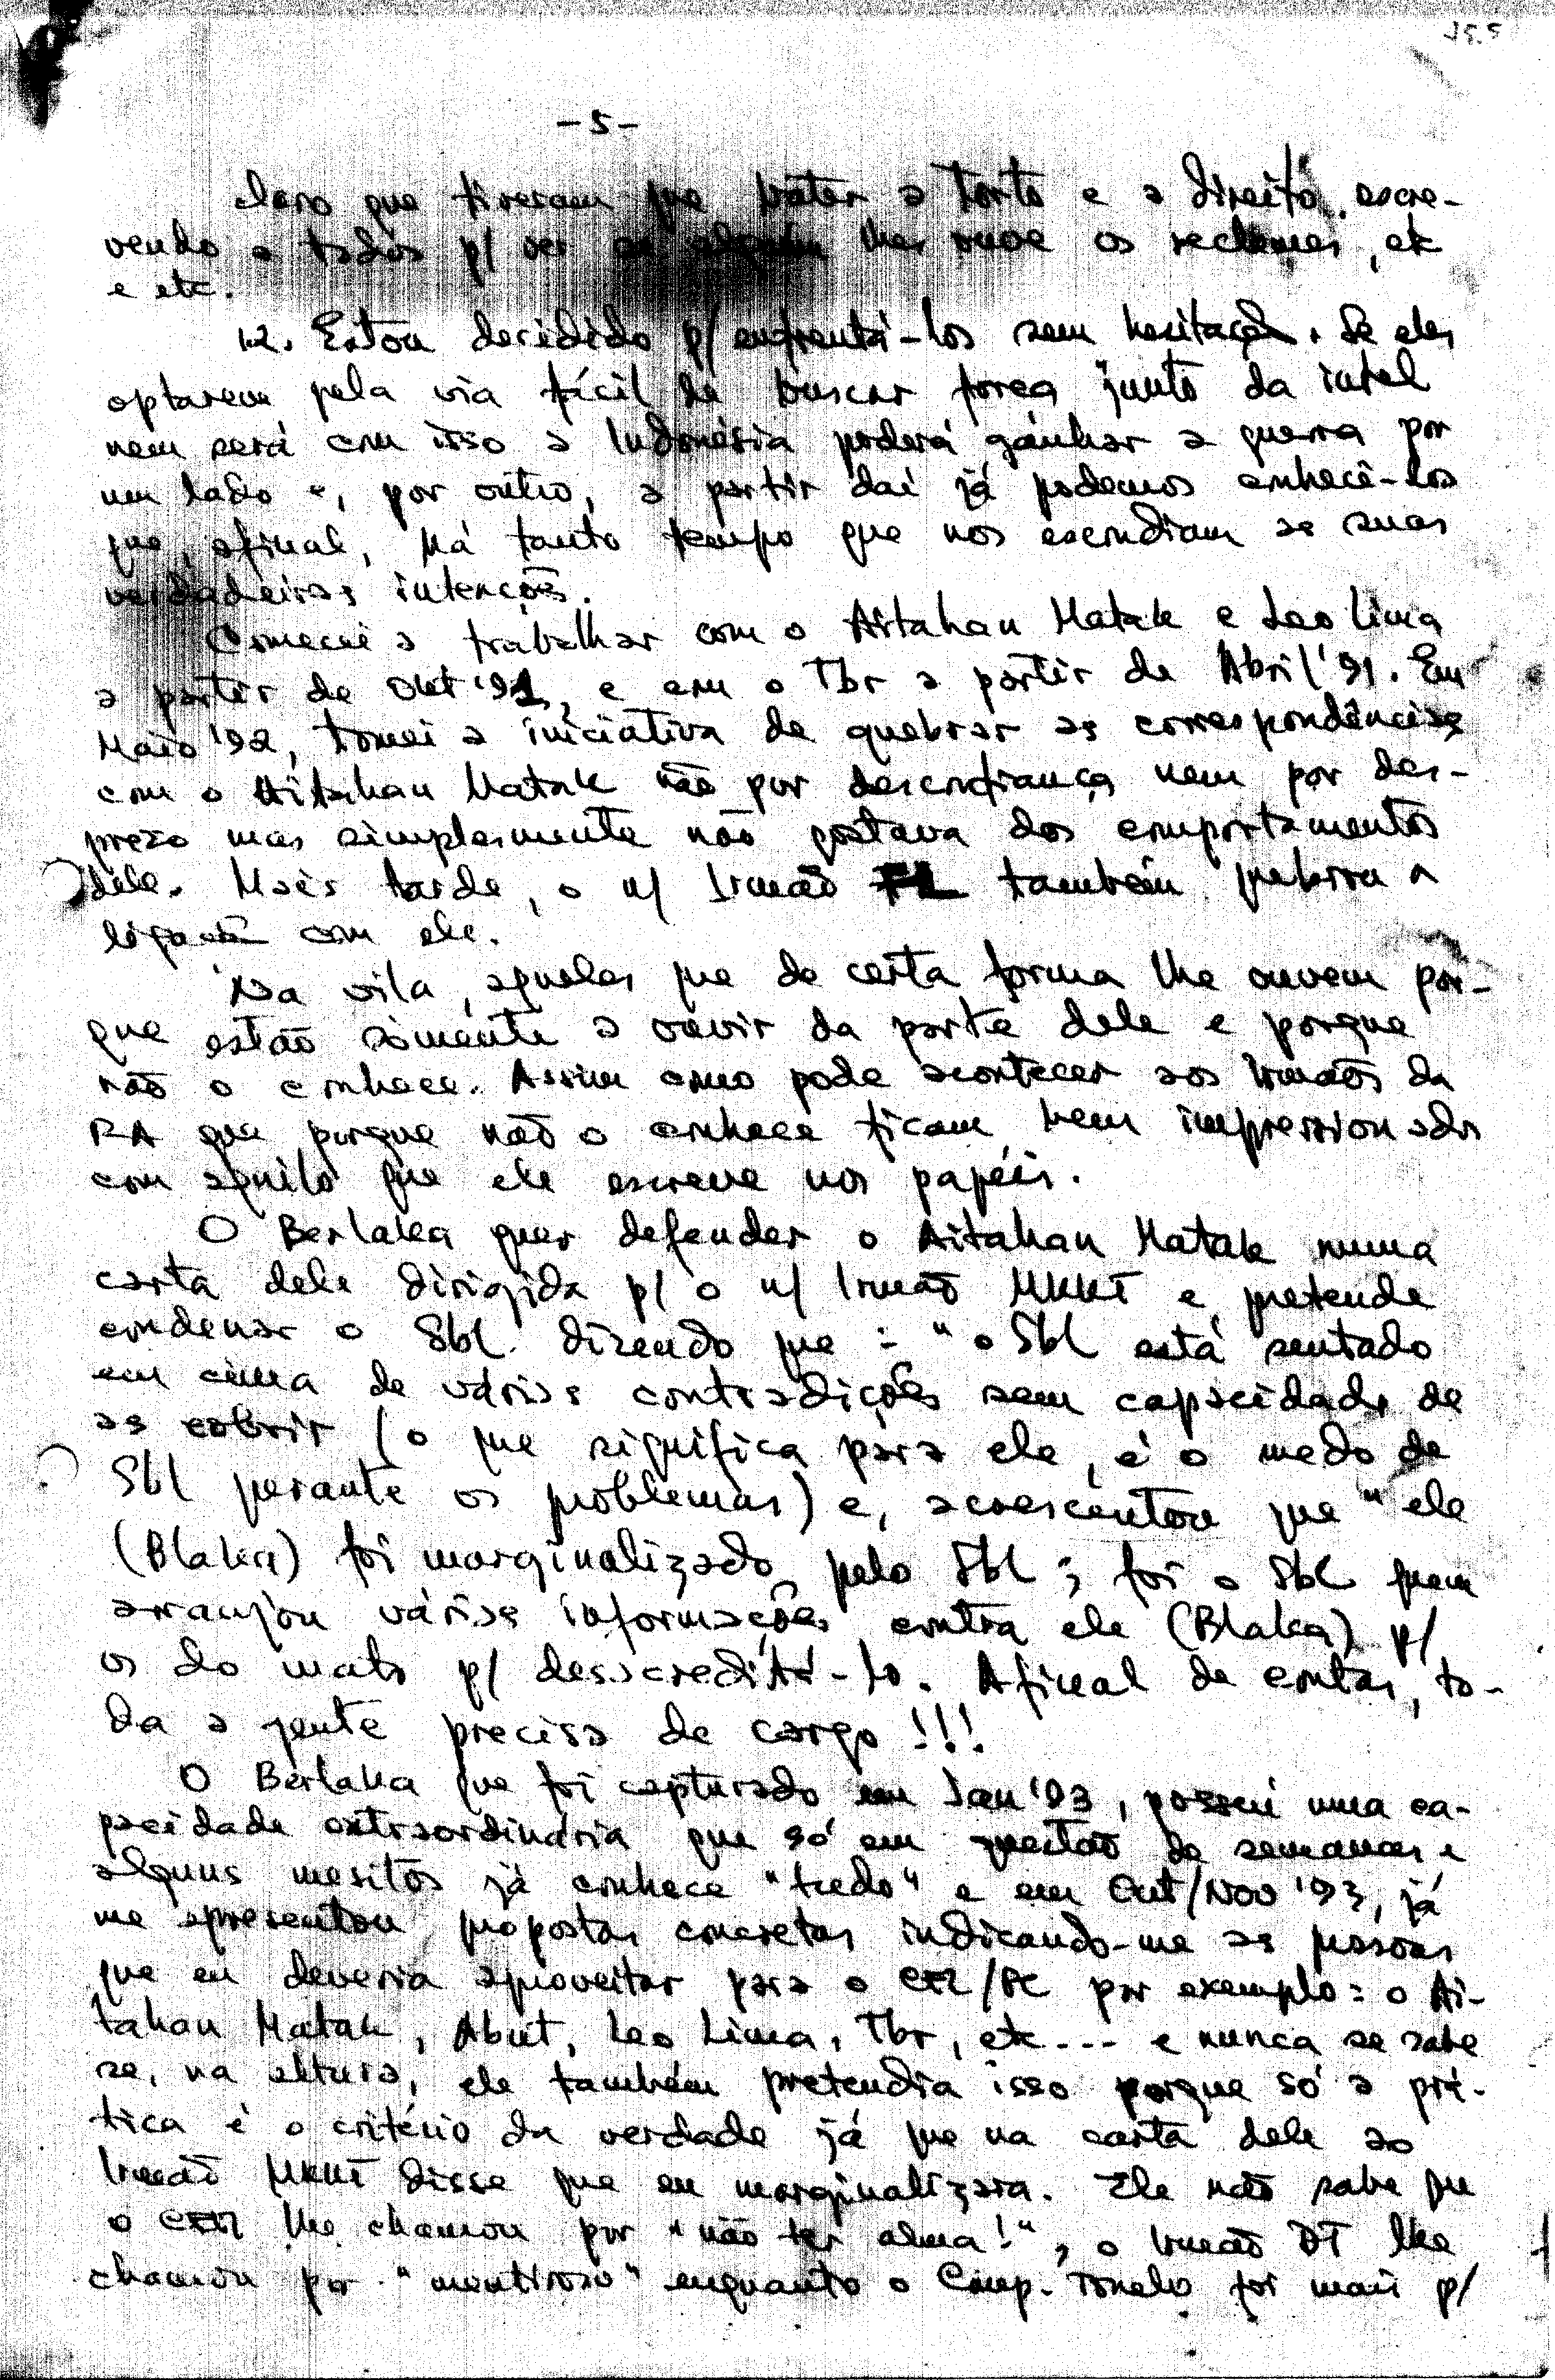 - 5 -
claro que tiveram que bater a torto e a direito, escre-
vendo a todos p/ ver se alguém lhes ouve os reclames, etc
e etc.
12. Estou decidido p/ enfrentá-los sem hesitação. Se eles
optarem pela via fácil de buscar força junto da intel
nem será com isso a Indonésia poderá ganhar a guerra por
um lado e, por outro, a partir daí já podemos conhecê-los
que, afinal, há tanto tempo que nos escondiam as suas
verdadeiras intenções.
Comecei a trabalhar com o Aitahan Matak e Leo Lima
a partir de Okt '91, e com o Tbr a partir de Abril '91. Em
Maio '92, tomei a iniciativa de quebrar as correspondências
com o Aitahan Matak não por desconfiança nem por des-
prezo mas simplesmente não gostava dos comportamentos
dele. Mais tarde, o n/ Irmão FL também quebrou a
ligação com ele.
Na vila, aqueles que de certa forma lhe ouvem por-
que estão somente a ouvir da parte dele e porque
não o conhece. Assim como pode acontecer aos Irmãos da
RA que porque não o conhece ficam bem impressionados
com aquilo que ele escreve nos papéis.
O Berlaka quer defender o Aitahan Matak numa
carta dele dirigida p/ o n/ Irmão MKKT e pretende
condenar o Sbl. dizendo que : " o Sbl está sentado
em cima de várias contradições sem capacidade de
as cobrir (o que significa para ele, é o medo de
Sbl perante os problemas) e, acrescentou que " ele
(Blaka) foi marginalizado pelo Sbl ; foi o Sbl quem
arranjou várias informações contra ele (Blaka) p/
os do mato p/ desacreditá-lo. Afinal de contas, to-
da a gente precisa de cargo !!!
O Berlaka que foi capturado em Jan '93, possui uma ca-
pacidade extraordinária que só em questão de semanas e
alguns mesitos já conhece "tudo" e em Out/Nov '93, já
me apresentou propostas concretas indicando-me as pessoas
que eu deveria aproveitar para o CER/FC por exemplo : o Ai-
tahan Matak, Abut, Leo Lima, Tbr, etc --- e nunca se sabe
se, na altura, ele também pretendia isso porque só a prá-
tica é o critério da verdade já que na carta dele ao
Irmão MKKT disse que eu marginalizara. Ele não sabe que
o lhe chamou por "não ter alma!", o Irmão DT lhe
chamou por "mentiroso" enquanto o Comp. Konelio foi mais p/